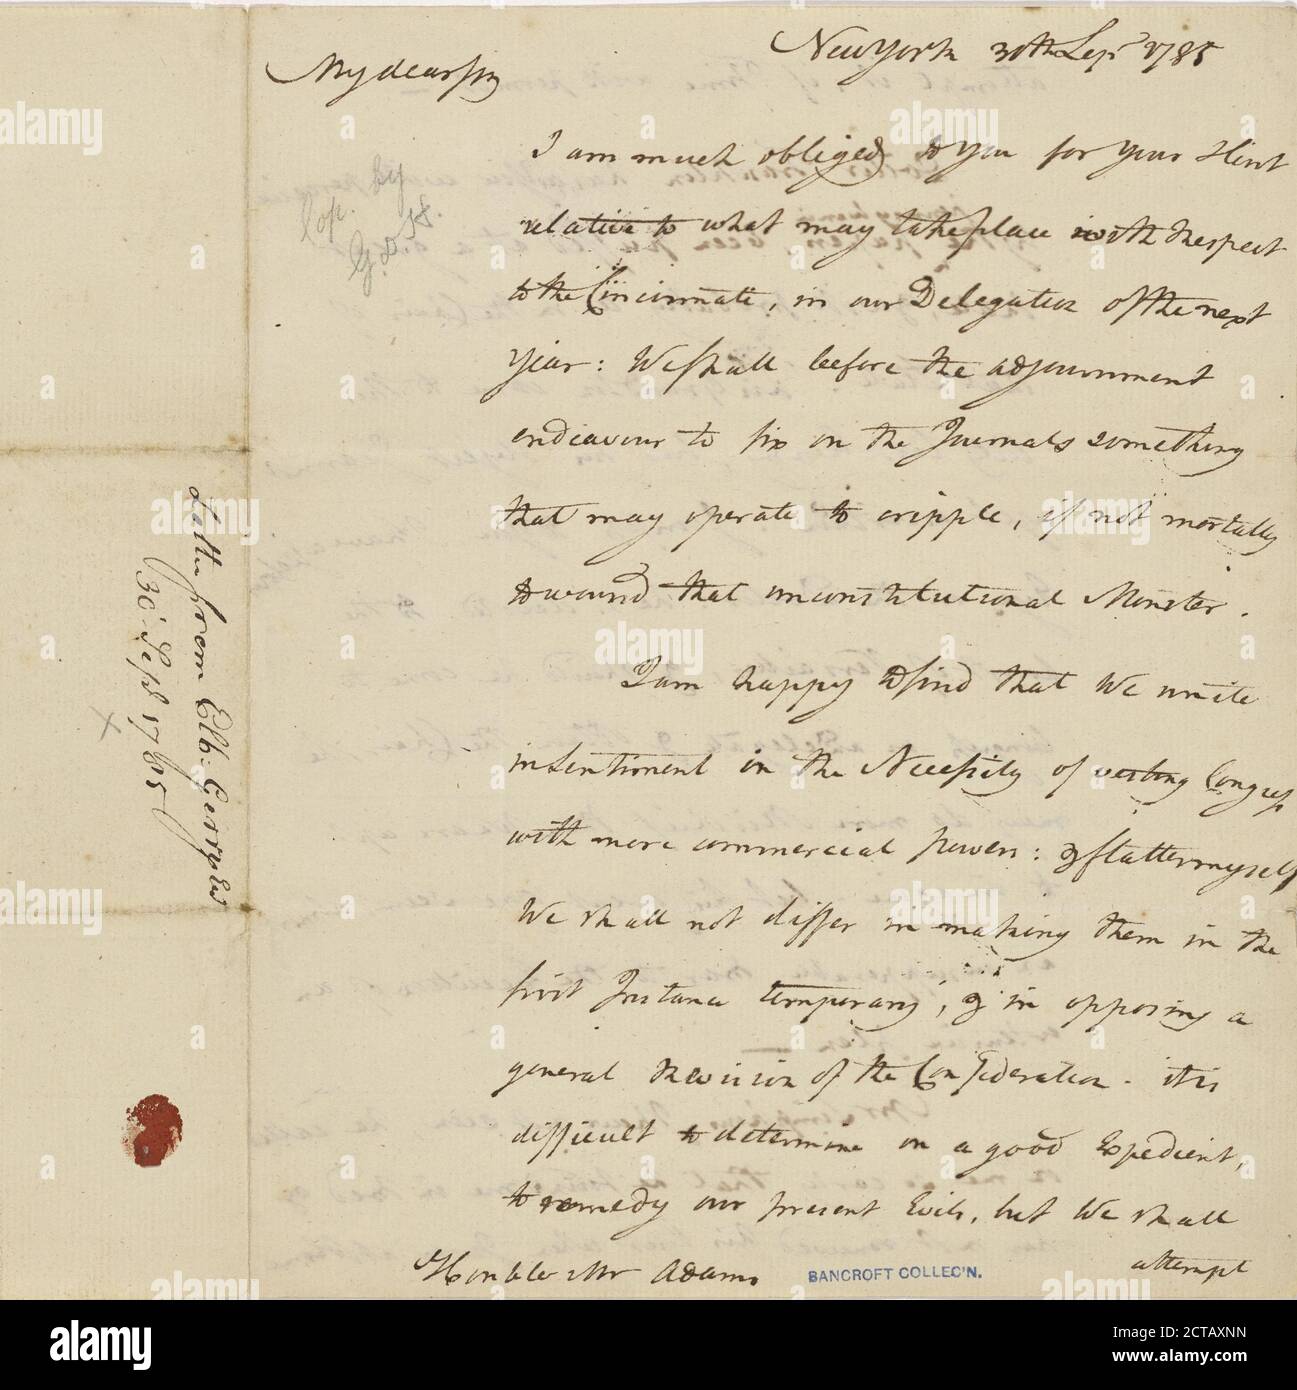 New York 30th Sepr 1785
My dear sir
I am much obliged to You for Your Hint
relative to what may take place with respect
to the Cincinnate, in our Delegation of the next
Year: We shall before the adjournment
endeavour to fix on the Journals something
that may operate to cripple, if not mortally
to wound that unconstitutional Monster.
I am happy to find that We unite
in sentiment in the Necessity of vesting Congress
with more commercial powers: & flatter myself
We shall not differ in making them in the
first Instance temporary, & in opposing a
general Revision of the Confederation. it is
difficult to determine on a good Expedient,
to remedy our present Evils, but We shall
attempt
Honble Mr Adams
BANCROFT COLLEC'N.
Cop. by
G. D. H.
Lettr from Elb: Gerry Es
30 Sepr 1785
x
alamy
a
alamy
Image ID: 2CTAXNN
www.alamy.com